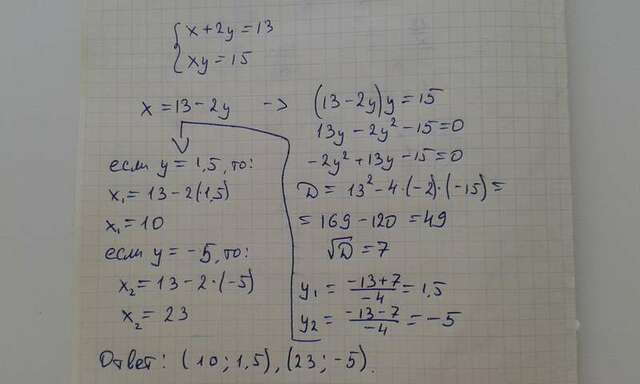 { x + 2y = 13
xy = 15
x = 13 - 2y -> (13 - 2y)y = 15
13y - 2y² - 15 = 0
-2y² + 13y - 15 = 0
D = 13² - 4·(-2)·(-15) =
= 169 - 120 = 49
√D = 7
y₁ = (-13+7)/(-4) = 1,5
y₂ = (-13-7)/(-4) = -5
если y = 1,5, то:
x₁ = 13 - 2(1,5)
x₁ = 10
если y = -5, то:
x₂ = 13 - 2·(-5)
x₂ = 23
Ответ: (10; 1,5), (23; -5).